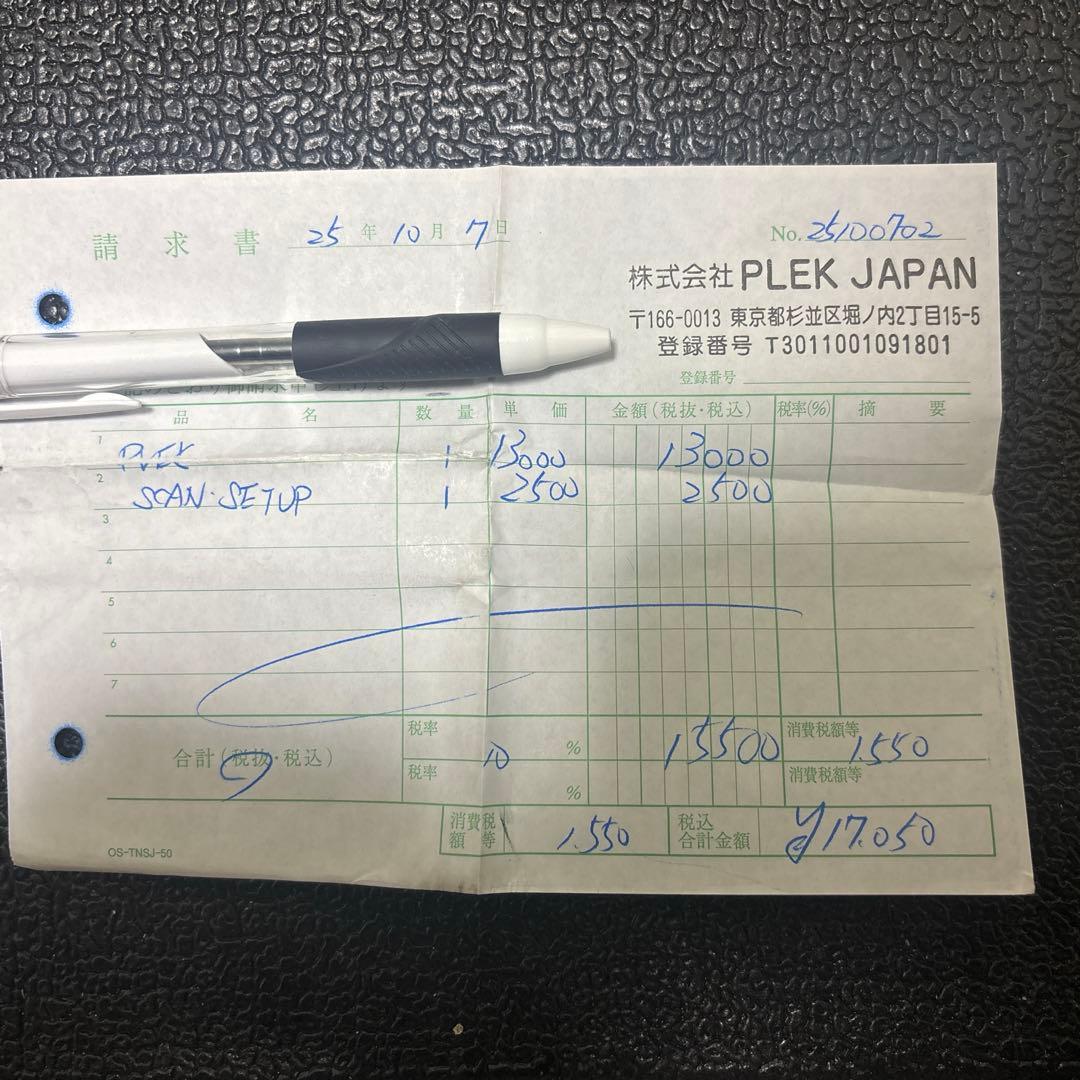 請求書 25年10月7日 No.25100702
株式会社 PLEK JAPAN
〒166-0013 東京都杉並区堀ノ内2丁目15-5
登録番号 T3011001091801
登録番号
品名 数量 単価 金額(税抜・税込) 税率(%) 摘要
1 PLEK 1 13000 13000
2 SCAN・SETUP 1 2500 2500
3
4
5
6
7
合計(税抜・税込) 税率 10% 15500 消費税額等 1.550
税率 % 消費税額等
消費税額等 1.550 税込合計金額 ¥17.050
OS-TNSJ-50